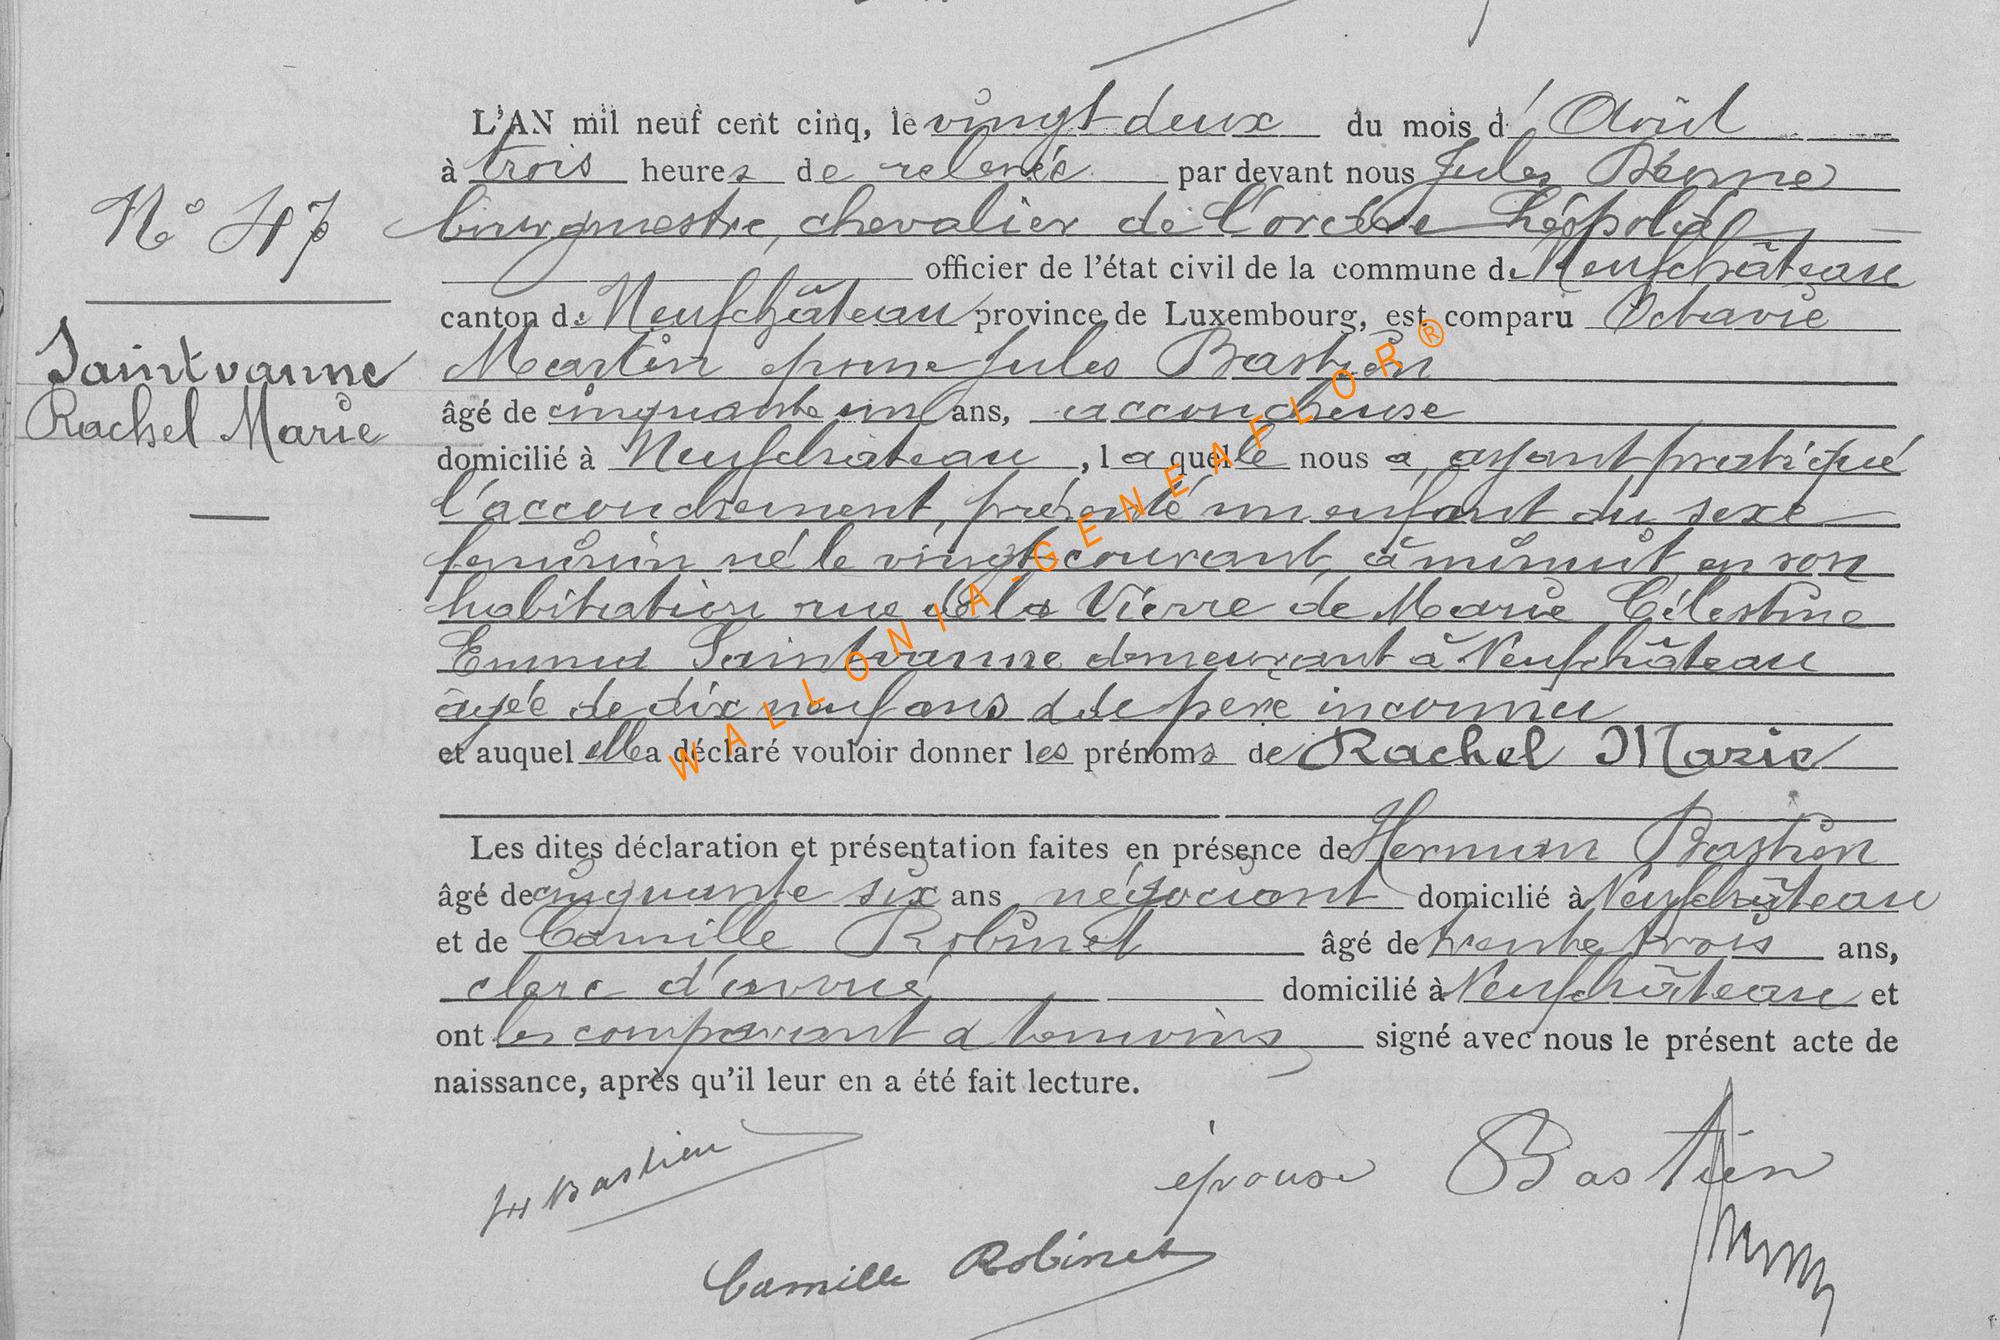 L'AN mil neuf cent cinq, le vingt deux du mois d' Avril
à trois heures de relevée par devant nous Jules
bourgmestre, chevalier de l'ordre Léopold
officier de l'état civil de la commune de Neufchâteau
canton de Neufchâteau province de Luxembourg, est comparu Octavie
Martin épouse Jules Bastien
âgé de cinquante un ans, accoucheuse
domicilié à Neufchateau, la quelle nous a, ayant pratiqué
l'accouchement, présenté un enfant du sexe
feminin né le vingt courant, à minuit en son
habitation rue de la Vierre de Marie Célestine
Emma Saintvanne demeurant à Neufchâteau
agée de dix neuf ans & de père inconnu
et auquel elle a déclaré vouloir donner les prénoms de Rachel Marie
Les dites déclaration et présentation faites en présence de Herman Bastien
âgé de cinquante six ans négociant domicilié à Neufchâteau
et de Camille Robinet âgé de trente trois ans,
clerc d'avoué domicilié à Neufchâteau et
ont les comparant & temoins signé avec nous le présent acte de
naissance, après qu'il leur en a été fait lecture.
N° 47
Saintvanne
Rachel Marie
H Bastien
épouse Bastien
Camille Robinet
WALLONIA-GENEAFLOR®